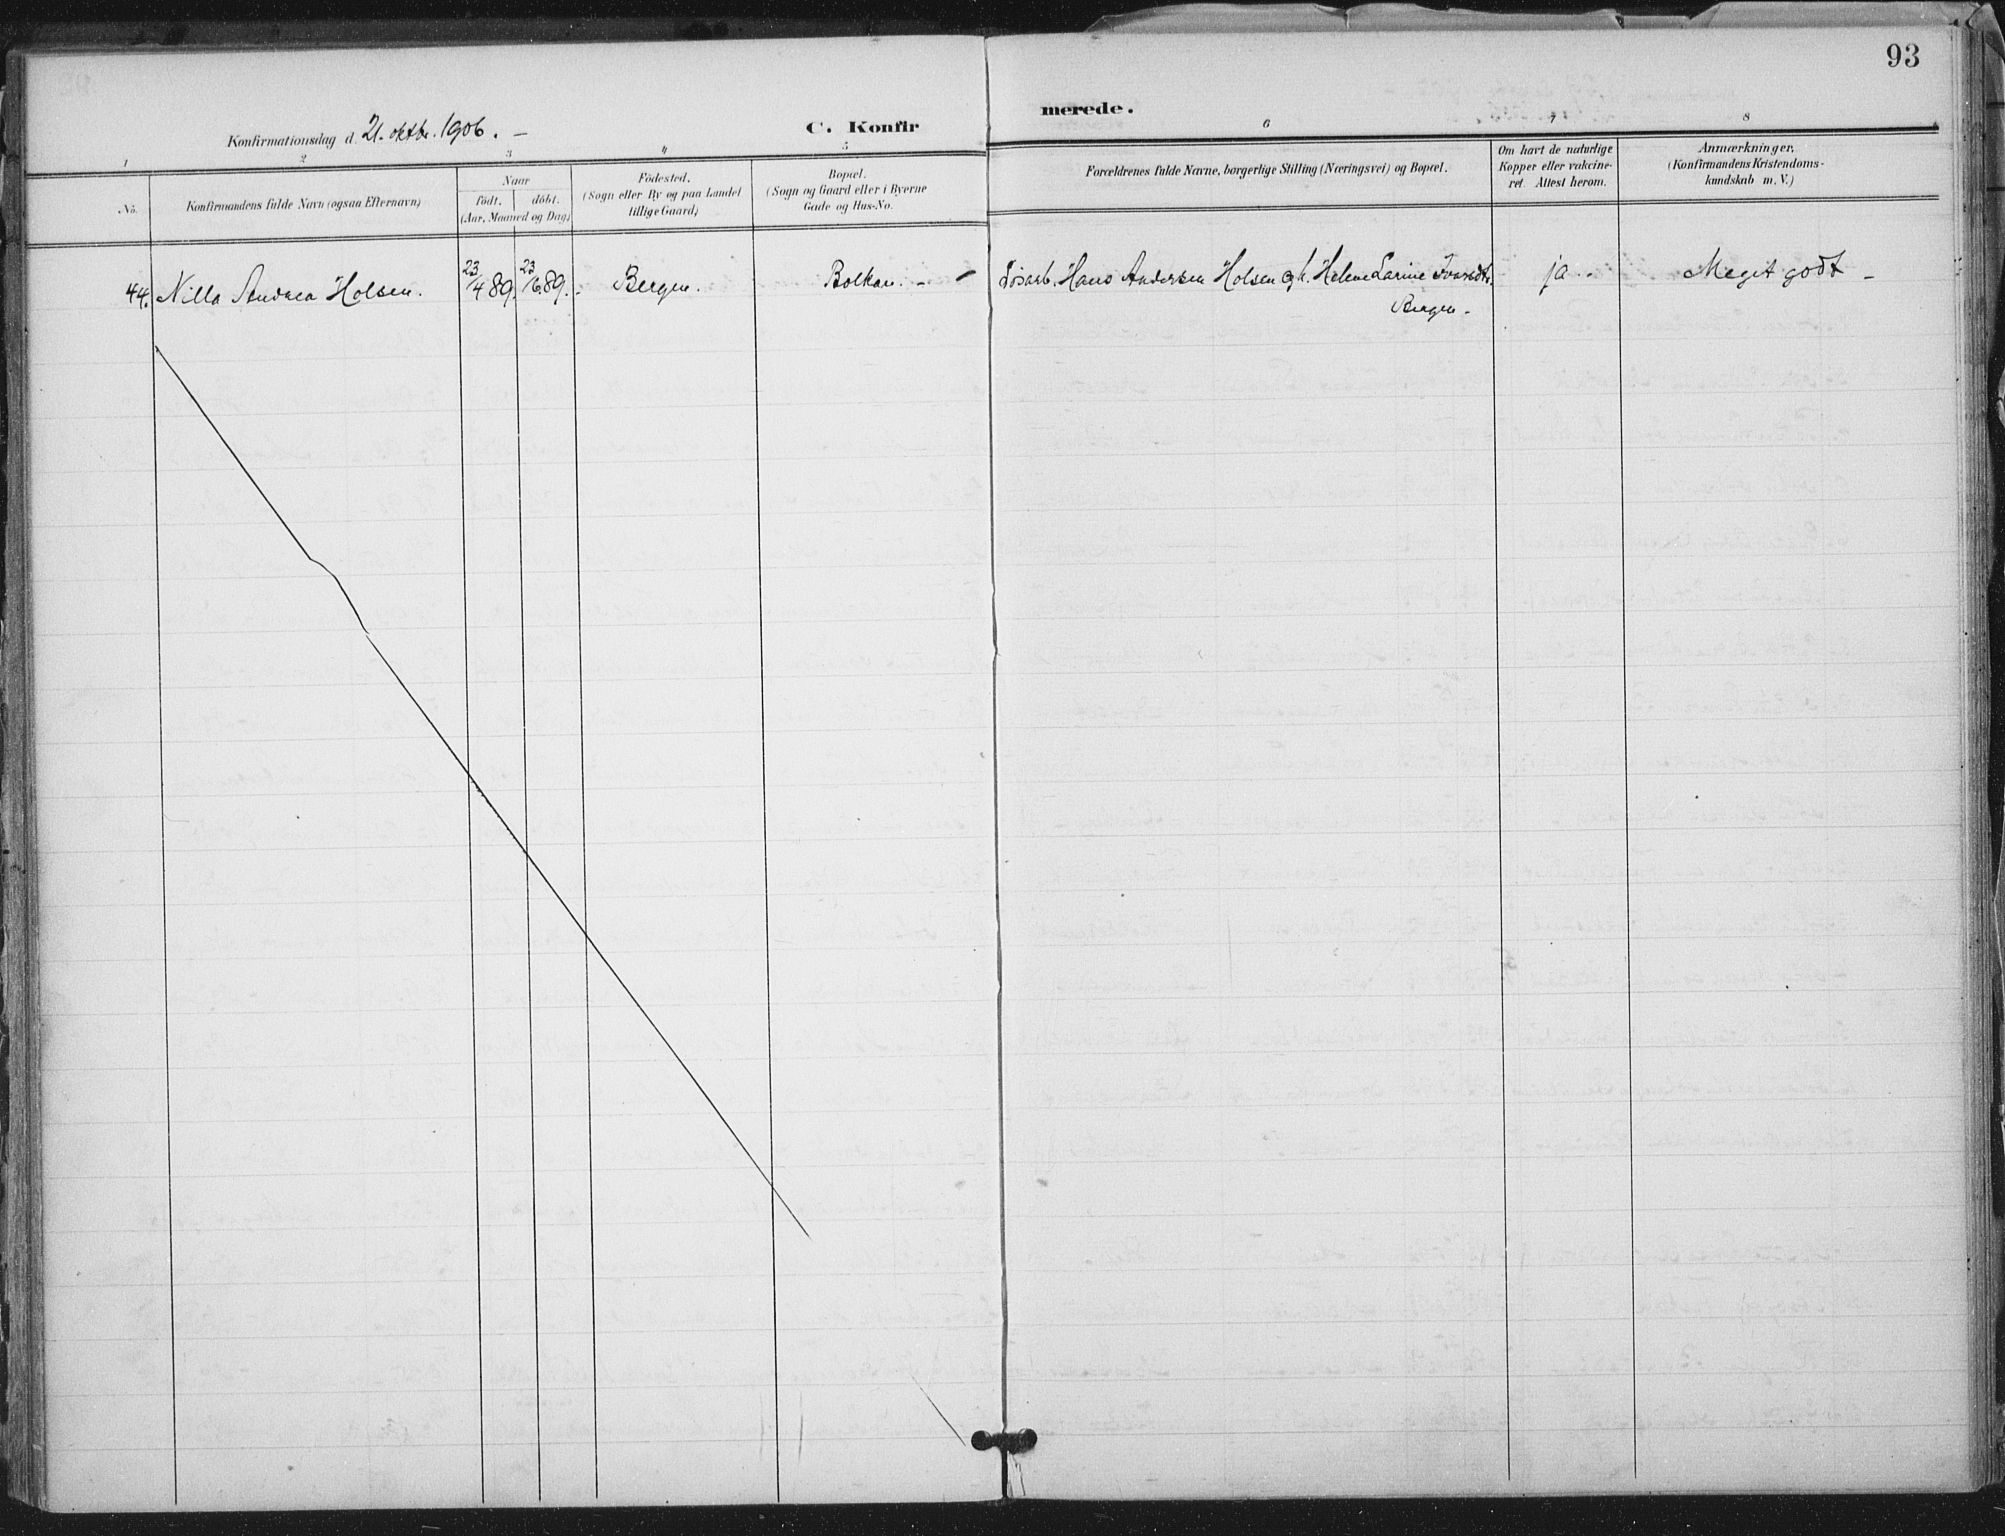 93
Konfirmationsdag d. 21. oktbr. 1906. -
C. Konfir
merede.
1
2
3
4
5
6
7
8
No.
Konfirmandens fulde Navn (ogsaa Efternavn)
Naar
födt.
döbt.
(Aar, Maaned og Dag)
Födested.
(Sogn eller By og paa Landet
tillige Gaard)
Bopæl.
(Sogn og Gaard eller i Byerne
Gade og Hus-No.
Forældrenes fulde Navne, borgerlige Stilling (Næringsvei) og Bopæl.
Om havt de naturlige
Kopper eller vakcine-
ret. Attest herom.
Anmærkninger.
(Konfirmandens Kristendoms-
kundskab m. V.)
44. Nilla Andrea Holsen. 23/4 89. 23/6 89. Bergen. Bolkan. - - Løsarb. Hans Andersen Holsen og h. Helene Larine ja.. Meget godt -
Bergen.